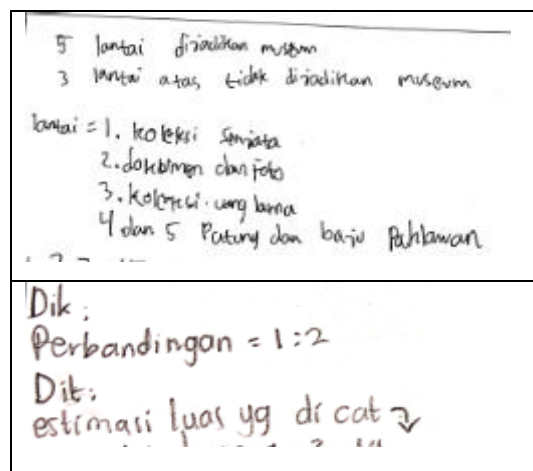 5 lantai dijadikan museum
3 lantai atas tidak dijadikan museum
lantai = 1. koleksi senjata
2. dokumen dan foto
3. koleksi uang lama
4 dan 5 Patung dan baju Pahlawan
Dik :
Perbandingan = 1:2
Dit:
estimasi luas yg di cat